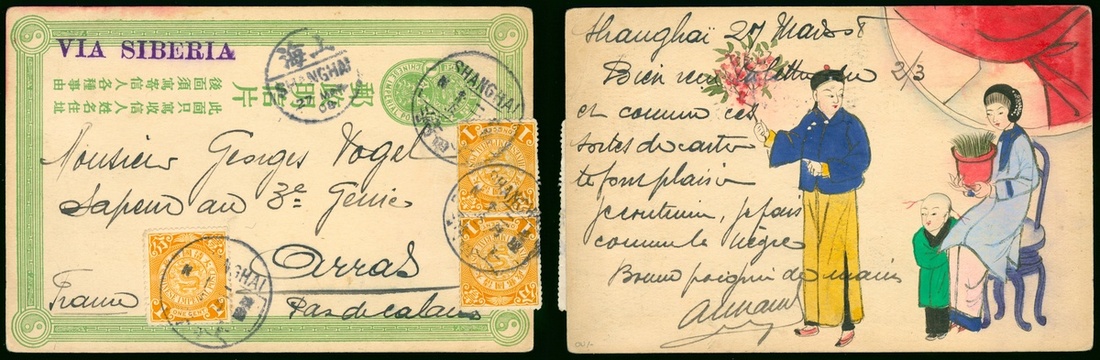 VIA SIBERIA
上海
SHANGHAI
27
大清郵政明信片
此面只寫收信人名姓住址
後面須寫寄信人各種事由
SHANGHAI
SHANGHAI
SHANGHAI
1
1
1
ONE CENT
Monsieur Georges Vogel
Sapeur au 3e Génie
Arras
France
Pas de calais
Shanghaï 27 Mars 8
2/3
Bien reçu ta lettre
et comme ces
sortes de carte
te font plaisir
je continue, je fais
comme le nègre
Bonne poignée de mains
Armand